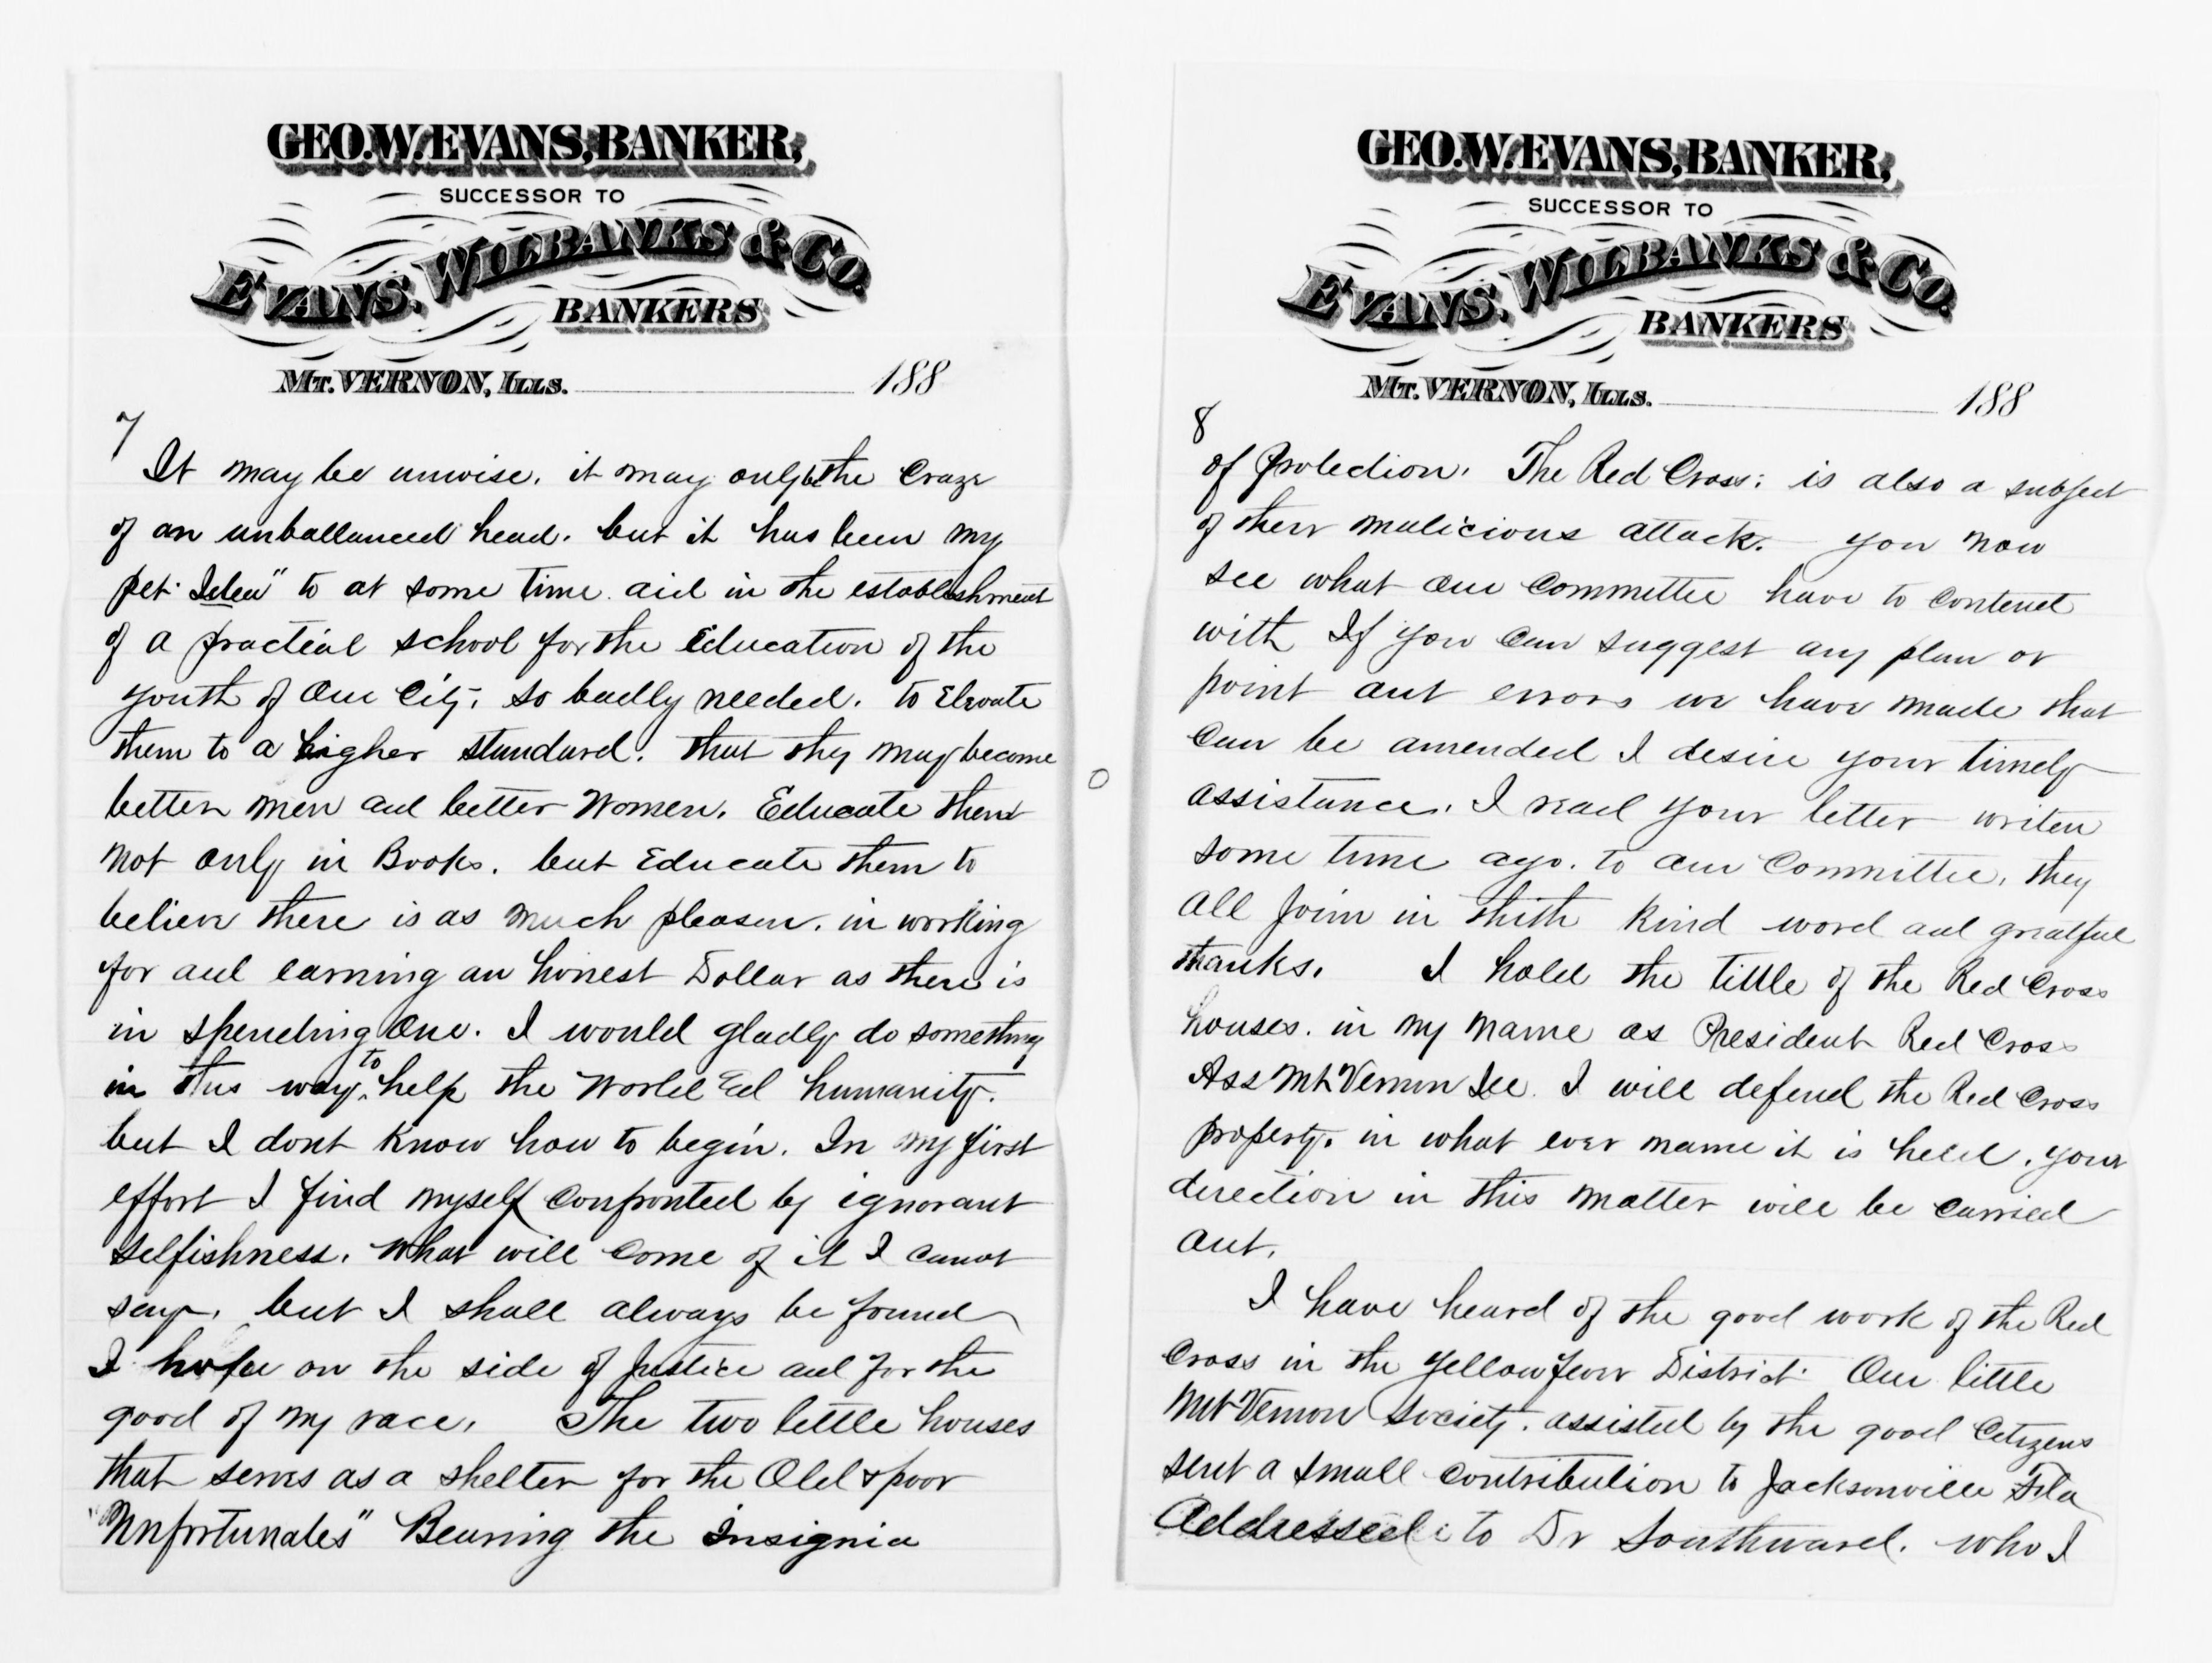 GEO. W. EVANS, BANKER,
SUCCESSOR TO
EVANS, WILBANKS & CO.
BANKERS
MT. VERNON, ILLS. 188
7
It may be unwise. it may only be the Craze
of an unballanced head. but it has been my
pet "Idea" to at some time aid in the establishment
of a practical school for the Education of the
youth of our City, so badly needed. to Elevate
them to a higher standard. that they may become
better men and better Women. Educate them
not only in Books. but Educate them to
believe there is as much pleasure. in working
for and earning an honest Dollar as there is
in spending One. I would gladly do something
in this way to help the World and humanity.
but I dont Know how to begin. In my first
effort I find myself confronted by ignorant
selfishness. What will come of it I canot
say, but I shall always be found
I hope on the side of Justice and for the
good of my race. The two little houses
that serves as a shelter for the Old & poor
"Unfortunates" Bearing the Insignia
GEO. W. EVANS, BANKER,
SUCCESSOR TO
EVANS, WILBANKS & CO.
BANKERS
MT. VERNON, ILLS. 188
8
of Protection. The Red Cross: is also a subject
of their malicious attack. you now
see what our Committee have to contend
with If you can suggest any plan or
point out errors we have made that
can be amended I desire your timely
assistance. I read your letter writen
some time ago. to our Committee, they
all Join in Kind word and greatful
thanks. I hold the tittle of the Red Cross
houses. in my name as President Red Cross
Ass Mt Vernon Ill. I will defend the Red Cross
property. in what ever name it is held. your
direction in this matter will be carried
out.
I have heard of the good work of the Red
Cross in the Yellow fever District. Our little
Mt Vernon Society. assisted by the good Citizens
sent a small contribution to Jacksonville Fla
Addressed to Dr Southward. who I